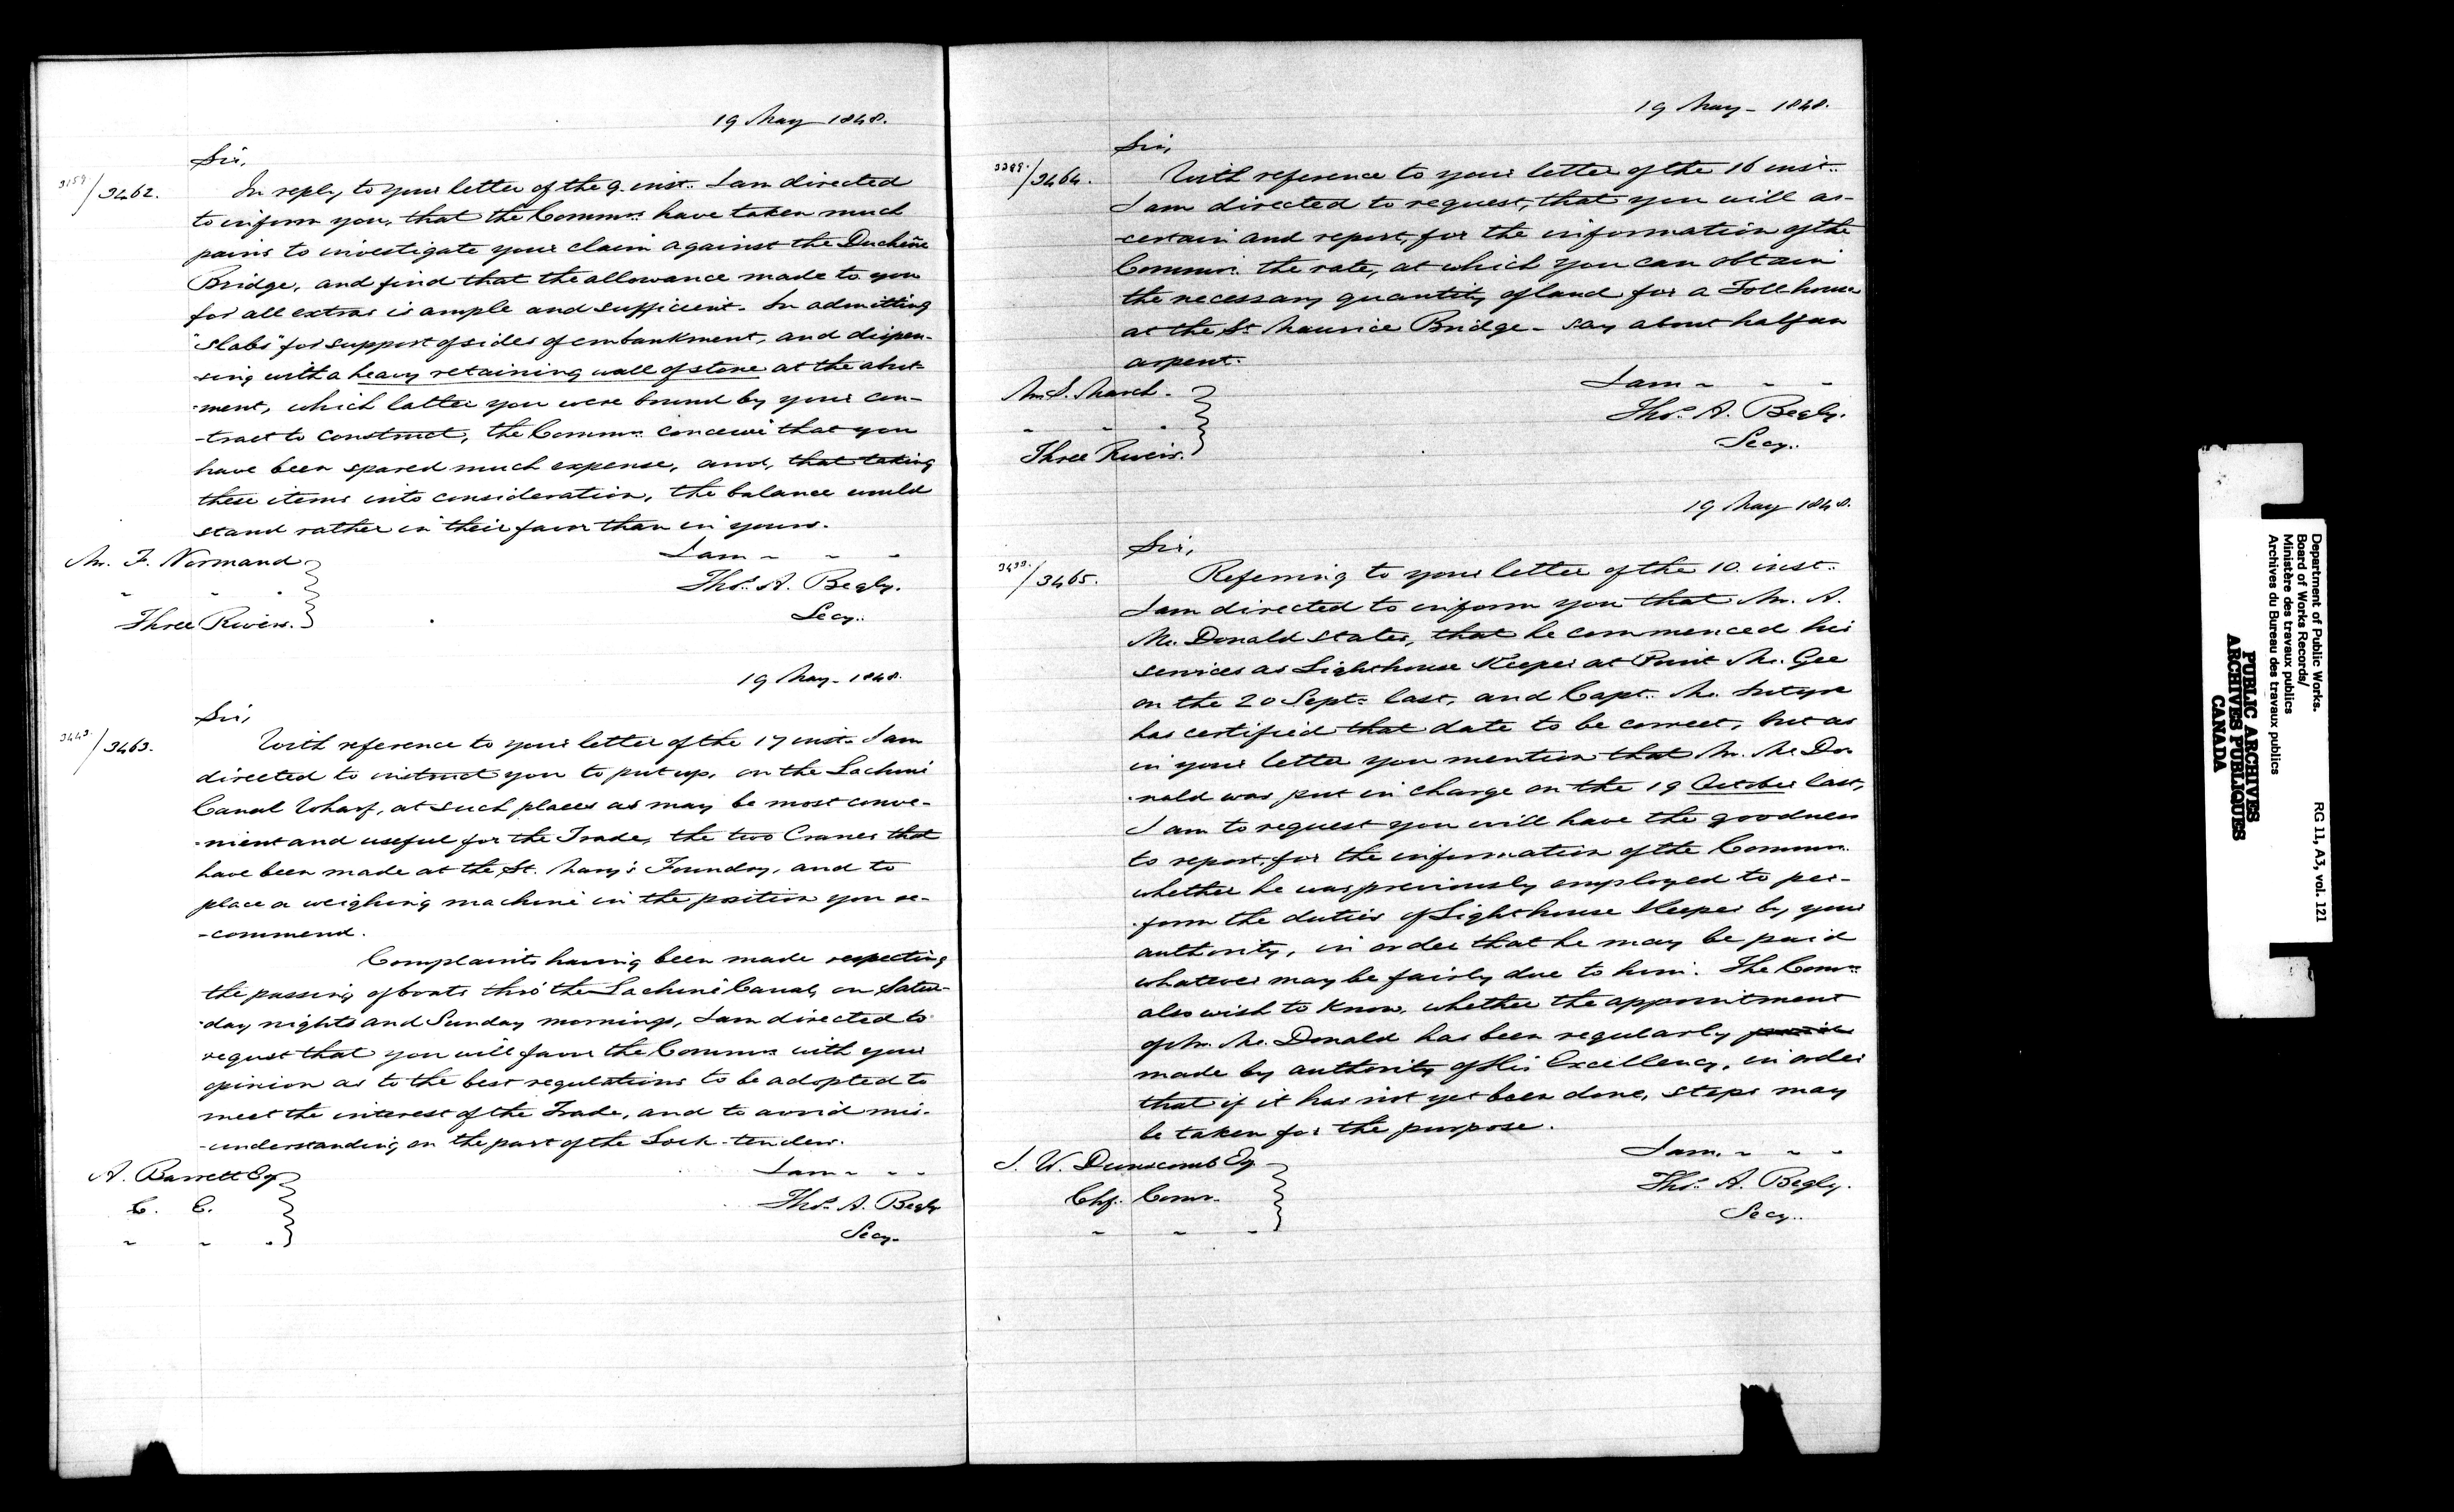 19 May 1848.
Sir,
3159./3462.
In reply to your letter of the 9. inst. I am directed
to inform you, that the Commrs. have taken much
pains to investigate your claim against the Duchêne
Bridge, and find that the allowance made to you
for all extras is ample and sufficient. In admitting
"slabs" for support of sides of embankment, and dispen-
-sing with a heavy retaining wall of stone at the abut-
-ment, which latter you were bound by your con-
-tract to construct, the Commrs. conceive that you
have been spared much expense, and, that taking
these items into consideration, the balance would
stand rather in their favor than in yours.
I am " " "
Thos. A. Begly.
Secy..
Mr. F. Normand
" " "
Three Rivers.
19 May- 1848.
Sir,
3443./3463.
With reference to your letter of the 17 inst. I am
directed to instruct you to put up, on the Lachine
Canal Wharf, at such places as may be most conve-
-nient and useful for the Trade, the two Cranes that
have been made at the St. Mary's Foundry, and to
place a weighing machine in the position you re-
-commend.
Complaints having been made respecting
the passing of boats thro' the Lachine Canal, on Satur-
-day nights and Sunday mornings, I am directed to
request that you will favor the Commrs. with your
opinion as to the best regulations to be adopted to
meet the interest of the Trade, and to avoid mis-
-understanding on the part of the Lock-tenders.
I am " " "
Thos. A. Begly
Secy.
A. Barrett Esq
C. E.
" " "
19 May- 1848.
Sir,
/3464.
With reference to your letter of the 16 inst..
I am directed to request, that you will as-
-certain and report, for the information of the
Commrs. the rate, at which you can obtain
the necessary quantity of land for a Toll-house
at the St. Maurice Bridge - say about half an
arpent.
I am " " "
Thos. A. Begly.
Secy..
Mr. S. March.
" " "
Three Rivers.
19 May 1848.
Sir,
/3465.
Referring to your letter of the 10. inst..
I am directed to inform you that Mr. A.
Mc. Donald states, that he commenced his
services as Lighthouse Keeper at Point Mc. Gee
on the 20 Sept. last, and Capt. Mc. Intyre
has certified that date to be correct, but as
in your letter you mention that Mr. Mc Do-
-nald was put in charge on the 19 October last,
I am to request you will have the goodness
to report, for the information of the Commrs.
whether he was previously employed to per-
-form the duties of Lighthouse Keeper by your
authority, in order that he may be paid
whatever may be fairly due to him. The Commrs.
also wish to know, whether the appointment
of Mr. Mc. Donald has been regularly
made by authority of His Excellency, in order
that if it has not yet been done, steps may
be taken for the purpose.
I am. " " "
Thos. A. Begly.
Secy..
J. W. Dunscomb Esq
Chf. Comr.
" " "
Department of Public Works.
Board of Works Records/
Ministère des travaux publics
Archives du Bureau des travaux publics
RG 11, A3, vol. 121
PUBLIC ARCHIVES
ARCHIVES PUBLIQUES
CANADA